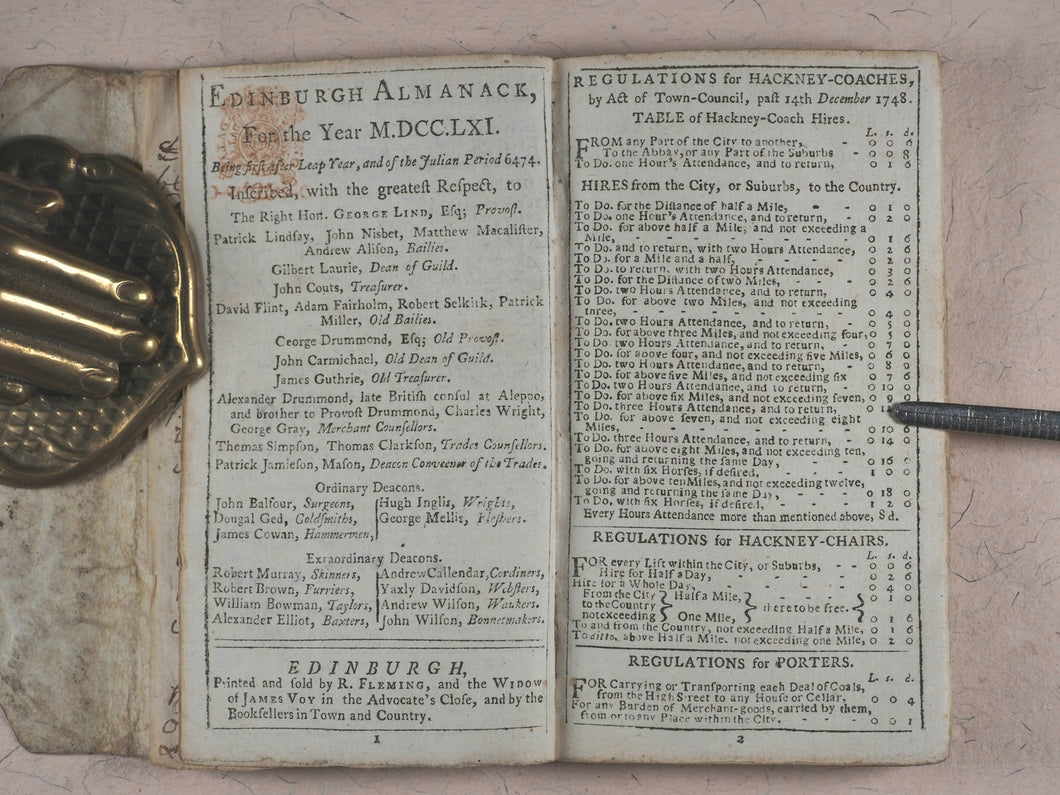 EDINBURGH ALMANACK,
For the Year M.DCC.LXI.
Being first after Leap Year, and of the Julian Period 6474.
Inscribed, with the greatest Respect, to
The Right Hon. GEORGE LIND, Esq; Provost.
Patrick Lindsay, John Nisbet, Matthew Macalister,
Andrew Alison, Bailies.
Gilbert Laurie, Dean of Guild.
John Couts, Treasurer.
David Flint, Adam Fairholm, Robert Selkirk, Patrick
Miller, Old Bailies.
George Drummond, Esq; Old Provost.
John Carmichael, Old Dean of Guild.
James Guthrie, Old Treasurer.
Alexander Drummond, late British consul at Aleppo,
and brother to Provost Drummond, Charles Wright,
George Gray, Merchant Counsellors.
Thomas Simpson, Thomas Clarkson, Trades Counsellors.
Patrick Jamieson, Mason, Deacon Conveener of the Trades.
Ordinary Deacons.
John Balfour, Surgeons, Hugh Inglis, Wrights,
Dougal Ged, Goldsmiths, George Mellis, Fleshers.
James Cowan, Hammermen,
Exraordinary Deacons.
Robert Murray, Skinners, Andrew Callendar, Cordiners,
Robert Brown, Furriers, Yaxly Davidson, Websters,
William Bowman, Taylors, Andrew Wilson, Waukers.
Alexander Elliot, Baxters, John Wilson, Bonnetmakers.
EDINBURGH,
Printed and sold by R. FLEMING, and the WIDOW
of JAMES VOY in the Advocate's Close, and by the
Booksellers in Town and Country.
1
REGULATIONS for HACKNEY-COACHES,
by Act of Town-Council, past 14th December 1748.
TABLE of Hackney-Coach Hires.
L. s. d.
FROM any Part of the City to another, - 0 0 6
To the Abbay, or any Part of the Suburbs - 0 0 8
To Do. one Hour's Attendance, and to return, 0 1 6
HIRES from the City, or Suburbs, to the Country.
To Do. for the Distance of half a Mile, - - 0 1 0
To Do. one Hour's Attendance, and to return, - 0 2 0
To Do. for above half a Mile, and not exceeding a
Mile, - - - - - - - 0 1 6
To Do. and to return, with two Hours Attendance, 0 2 6
To Do. for a Mile and a half, - - - - 0 2 0
To Do. to return, with two Hours Attendance, 0 3 0
To Do. for the Distance of two Miles, - - 0 2 6
To Do. two Hours Attendance, and to return, 0 4 0
To Do. for above two Miles, and not exceeding
three, - - - - - - - 0 4 0
To Do. two Hours Attendance, and to return, - 0 5 0
To Do. for above three Miles, and not exceeding four, 0 5 0
To Do. two Hours Attendance, and to return, - 0 7 0
To Do. for above four, and not exceeding five Miles, 0 6 0
To Do. two Hours Attendance, and to return, - 0 8 0
To Do. for above five Miles, and not exceeding six 0 7 6
To Do. two Hours Attendance, and to return, - 0 10 0
To Do. for above six Miles, and not exceeding seven, 0 9 0
To Do. three Hours Attendance, and to return, 0
To Do. for above seven, and not exceeding eight
Miles, - - - - - - 0 10 6
To Do. three Hours Attendance, and to return, - 0 14 0
To Do. for above eight Miles, and not exceeding ten,
going and returning the same Day, - - 0 16 0
To Do. with six Horses, if desired, - - - 1 0 0
To Do. for above ten Miles, and not exceeding twelve,
going and returning the same Day, - - 0 18 0
To Do, with six Horses, if desired, - - 1 2 0
Every Hours Attendance more than mentioned above, 8 d.
REGULATIONS for HACKNEY-CHAIRS.
L. s. d.
FOR every Lift within the City, or Suburbs, - - 0 0 6
Hire for Half a Day, - - - - 0 2 6
Hire for a Whole Day, - - - - 0 4 0
From the City } Half a Mile, } - - 0 1 0
to the Country } { there to be free. }
not exceeding } One Mile, } - - 0 1 6
To and from the Country, not exceeding Half a Mile, 0 1 6
To ditto, above Half a Mile, not exceeding one Mile, 0 2 0
REGULATIONS for PORTERS.
L. s. d.
FOR Carrying or Transporting each Deal of Coals,
from the High Street to any House or Cellar, 0 0 4
For any Burden of Merchant-goods, carried by them,
from or to any Place within the City, - 0 0 1
2